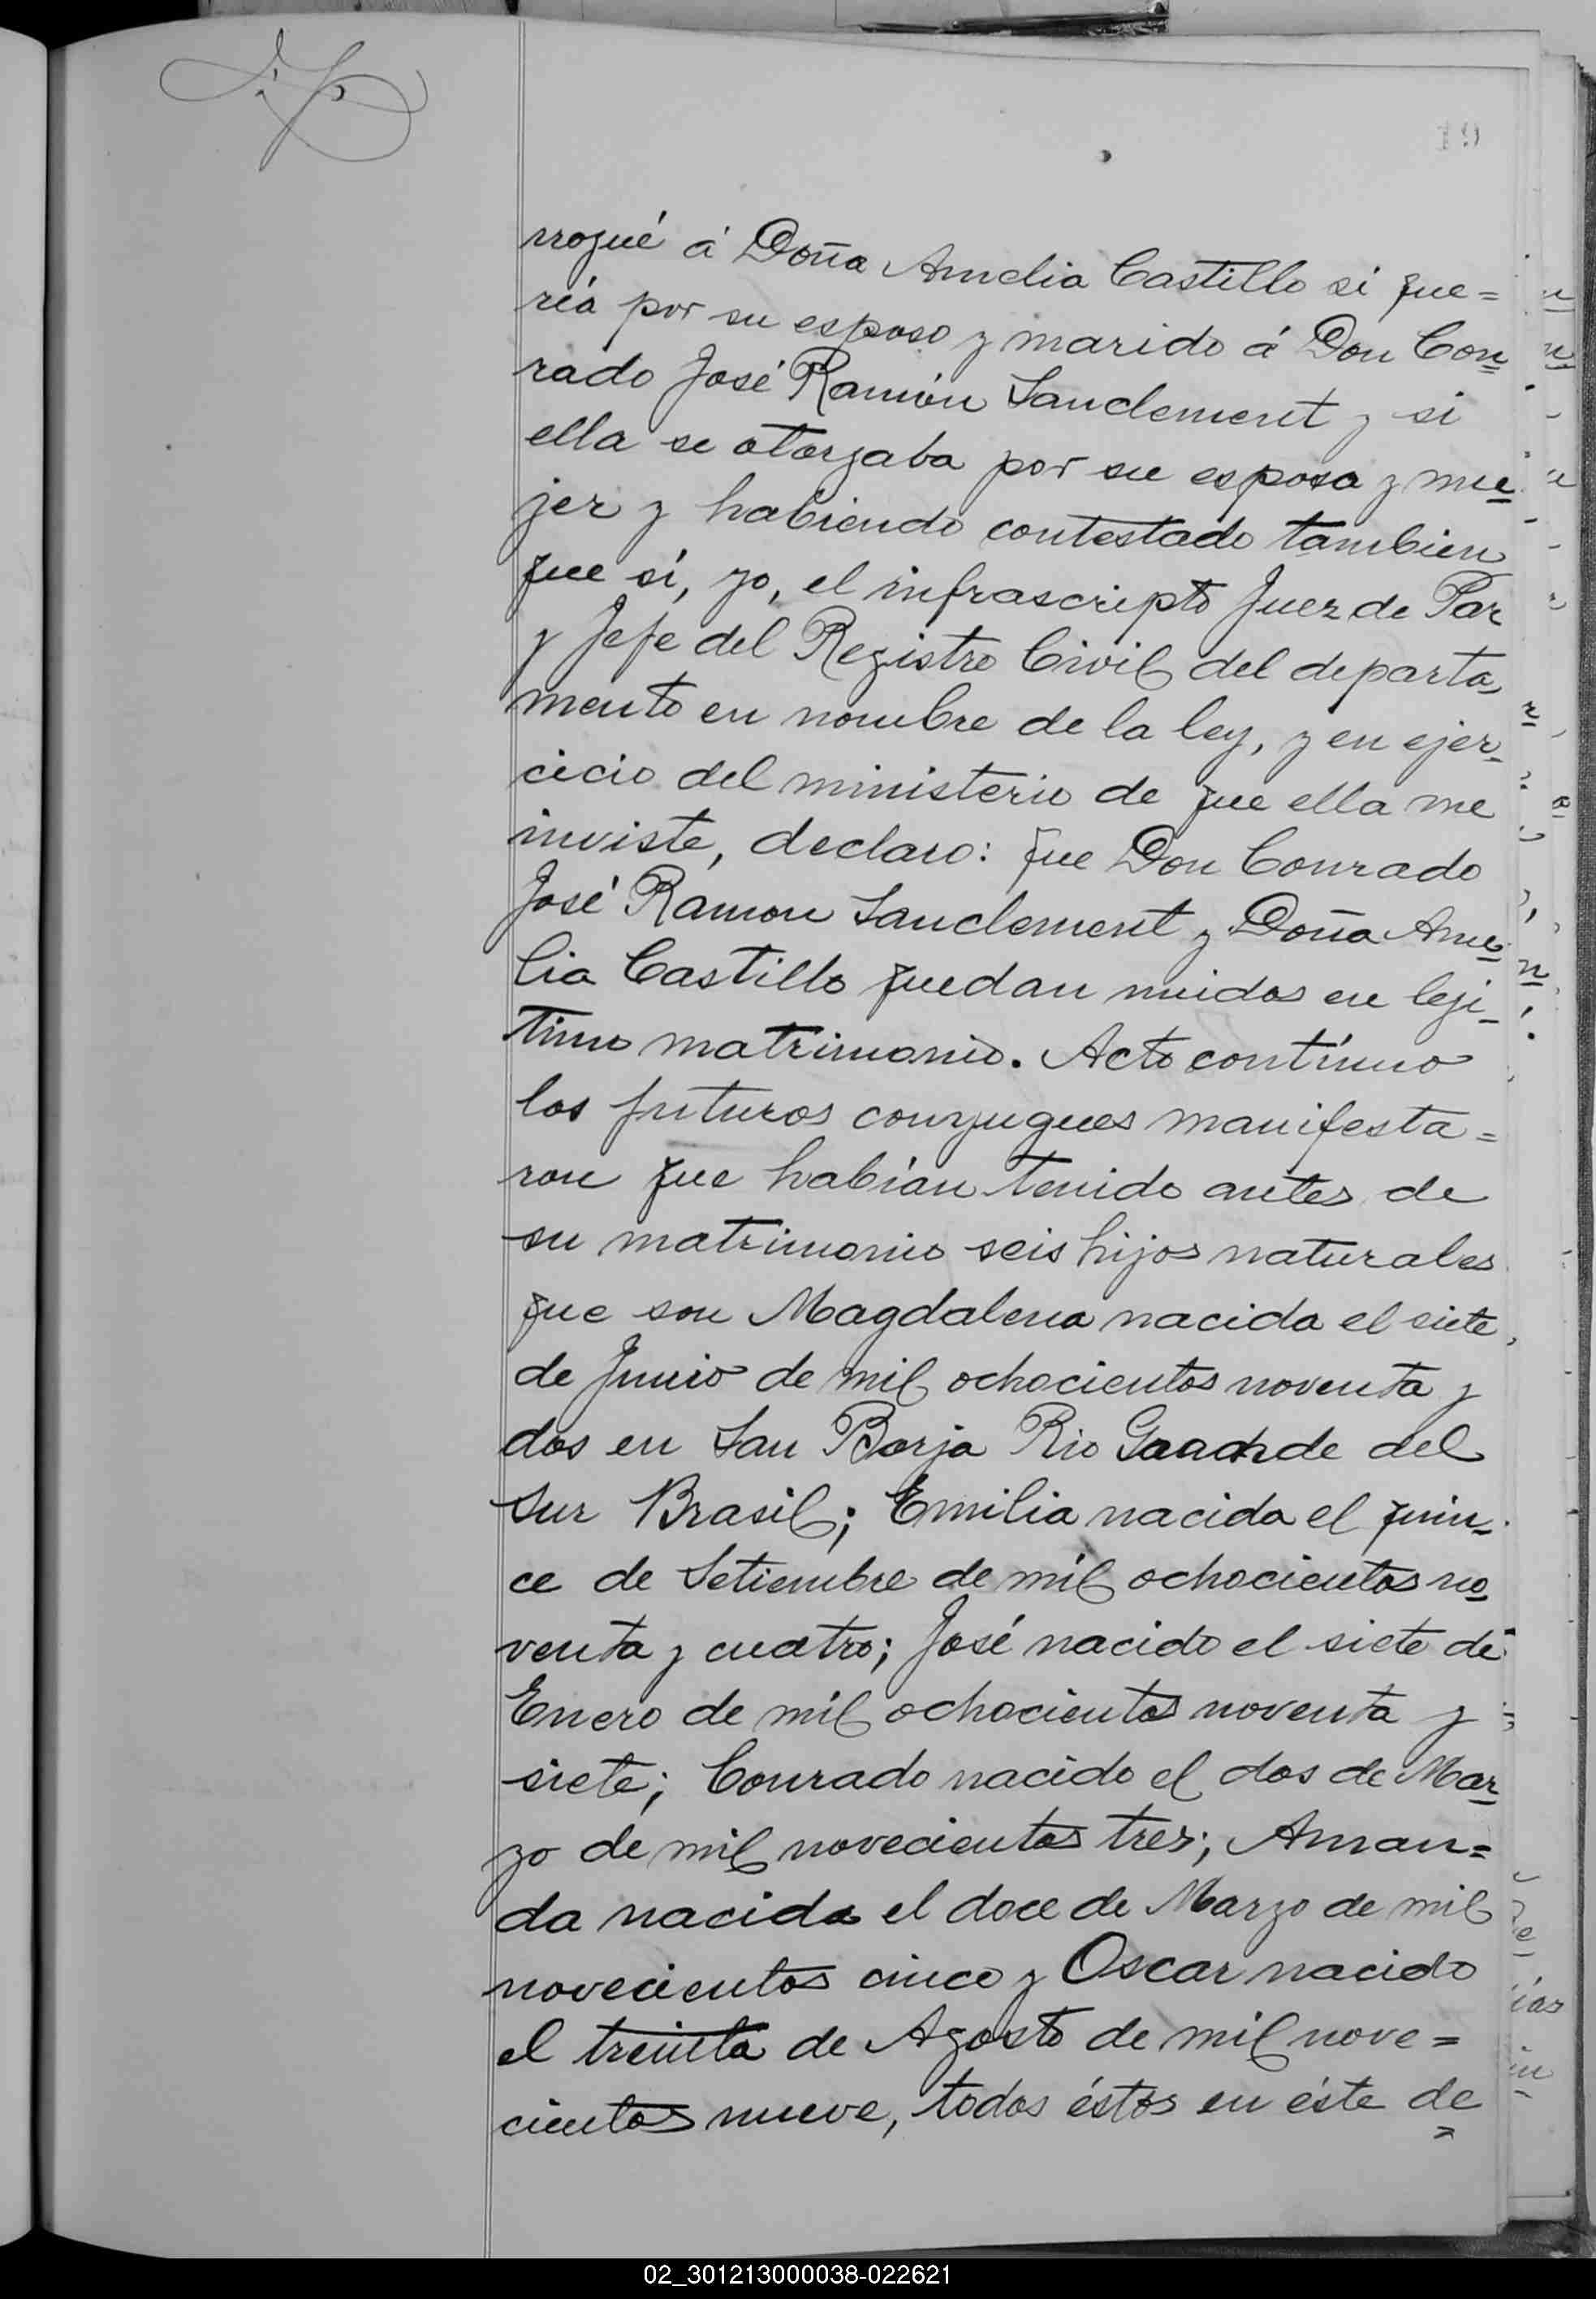 19
rrogué á Doña Amelia Castillo si que=
ria por su esposo y marido á Don Con
rado José Ramón Sanclement y si
ella se otorgaba por su esposa y mu
jer y habiendo contestado tambien
que sí, yo, el infrascripto Juez de Paz
y Jefe del Registro Civil del departa
mento en nombre de la ley, y en ejer-
cicio del ministerio de que ella me
inviste, declaro: que Don Conrado
José Ramon Sanclement y Doña Ame
lia Castillo quedan unidos en leji-
timo matrimonio. Acto contínuo
los futuros conyugues manifesta=
ron que habían tenido antes de
su matrimonio seis hijos naturales
que son Magdalena nacida el siete
de Junio de mil ochocientos noventa y
dos en San Borja Rio Graande del
Sur Brasil; Emilia nacida el quin-
ce de Setiembre de mil ochocientos no
venta y cuatro; José nacido el siete de
Enero de mil ochocientos noventa y
siete; Conrado nacido el dos de Mar
zo de mil novecientos tres; Aman=
da nacida el doce de Marzo de mil
novecientos cinco y Oscar nacido
el treinta de Agosto de mil nove=
cientos nueve, todos éstos en éste de=
02_301213000038-022621